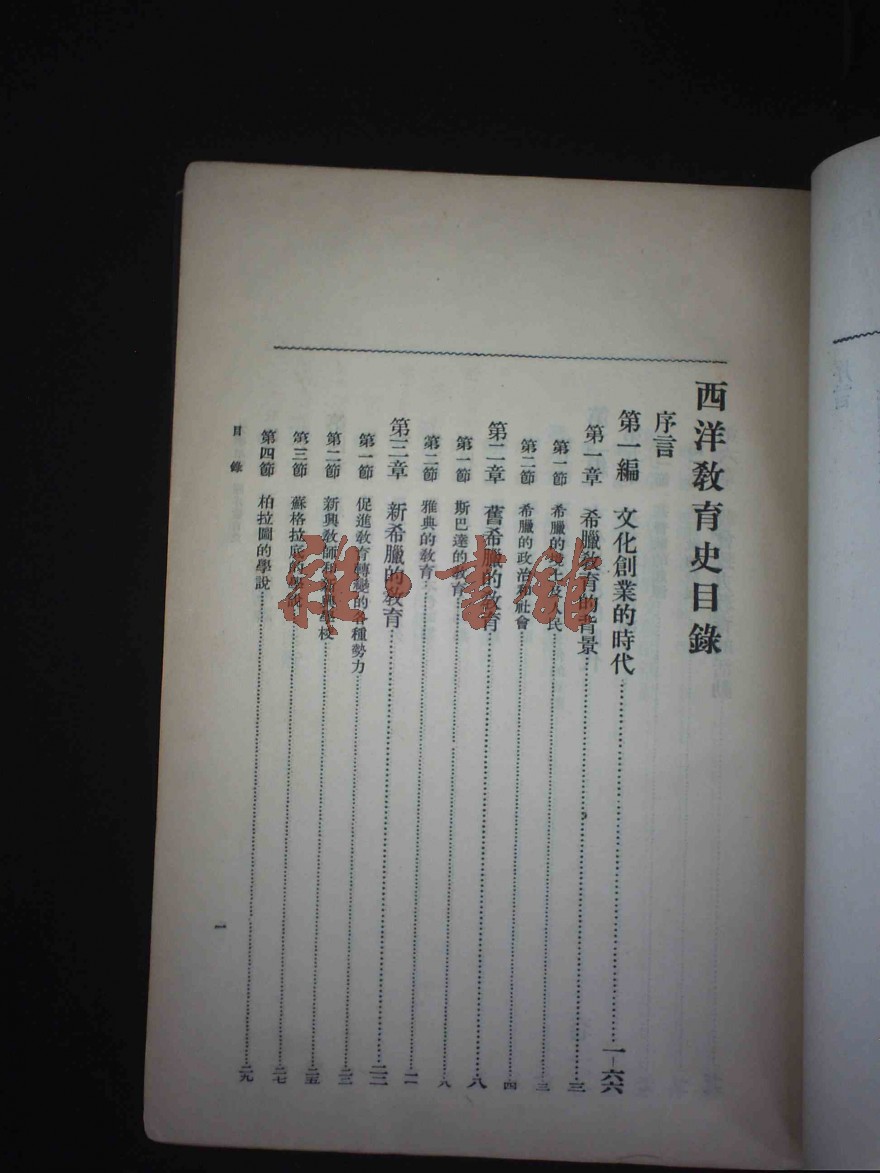 西洋教育史目錄
序言
第一編 文化創業的時代……一—六六
第一章 希臘教育的背景……三
第一節 希臘的境土及人民……三
第二節 希臘的政治和社會……四
第二章 舊希臘的教育……八
第一節 斯巴達的教育……八
第二節 雅典的教育……一一
第三章 新希臘的教育……二二
第一節 促進教育轉變的各種勢力……二二
第二節 新興教師和新興學校……二五
第三節 蘇格拉底的學說……二七
第四節 柏拉圖的學說……二九
目錄
一
雜·書館
序言